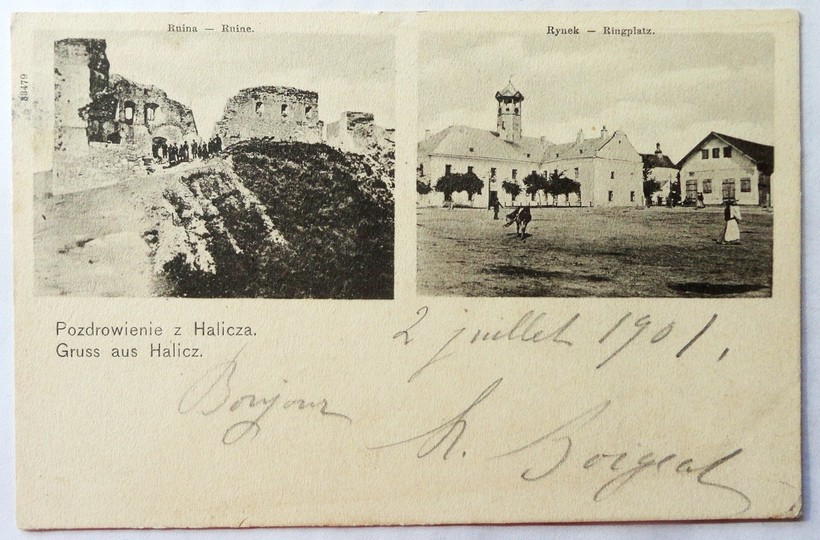 Ruina — Ruine.
Rynek — Ringplatz.
33479
Pozdrowienie z Halicza.
Gruss aus Halicz.
2 juillet 1901,
Bonjour